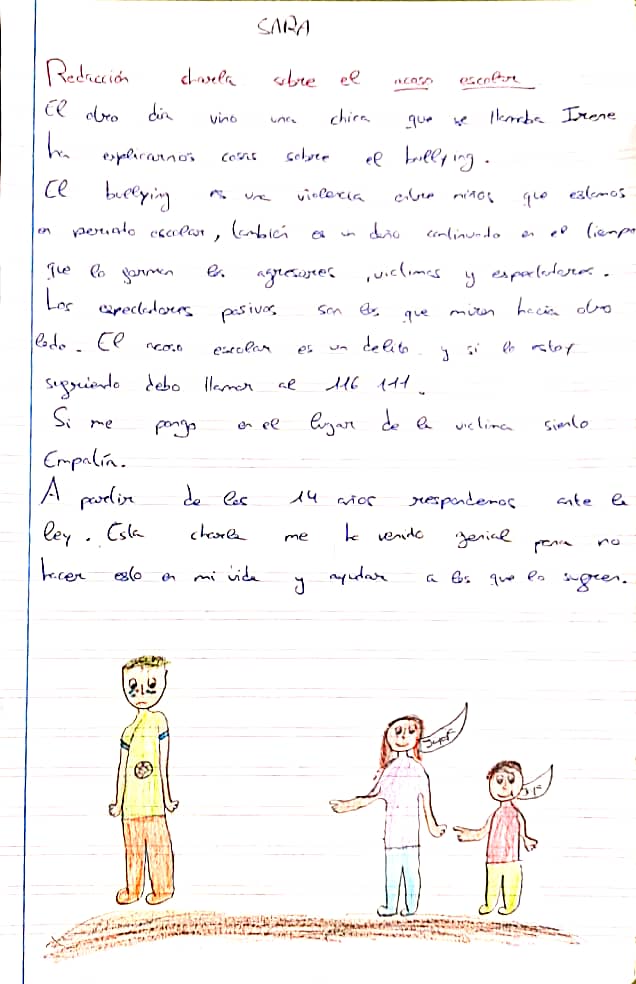 SARA
Redacción charla sobre el acoso escolar
El otro día vino una chica que se llamaba Irene
ha explicarnos cosas sobre el bullying.
El bullying es una violencia entre niños que estamos
en periodo escolar, también es un daño continuado en el tiempo
que lo forman los agresores, víctimas y espectadores.
Los espectadores pasivos son los que miran hacia otro
lado. El acoso escolar es un delito y si lo estoy
sufriendo debo llamar al 116 111.
Si me pongo en el lugar de la victima siento
Empatía.
A partir de los 14 años respondemos ante la
ley. Esta charla me ha venido genial para no
hacer esto en mi vida y ayudar a los que lo sufren.